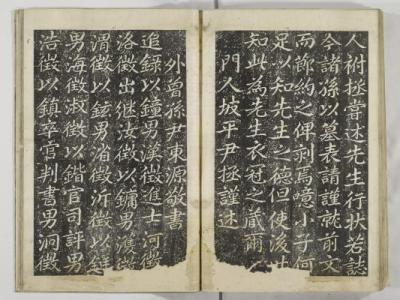 人祔拯嘗述先生行狀若誌
今諸孫以墓表請謹就前文
而節約之俾剞焉噫小子何
足以知先生之德但使後世
知此為先生衣冠之藏爾
門人坡平尹拯謹述
外曾孫尹東源敬書
追錄以鐘男漢徵進士河徵
洛徵出继汝徵以鏞男濟徵
渭徵以鋐男省徵沂徵以
男海徵淑徵以鍇官司評男
浩徵以鎮宰官判書男泂徵